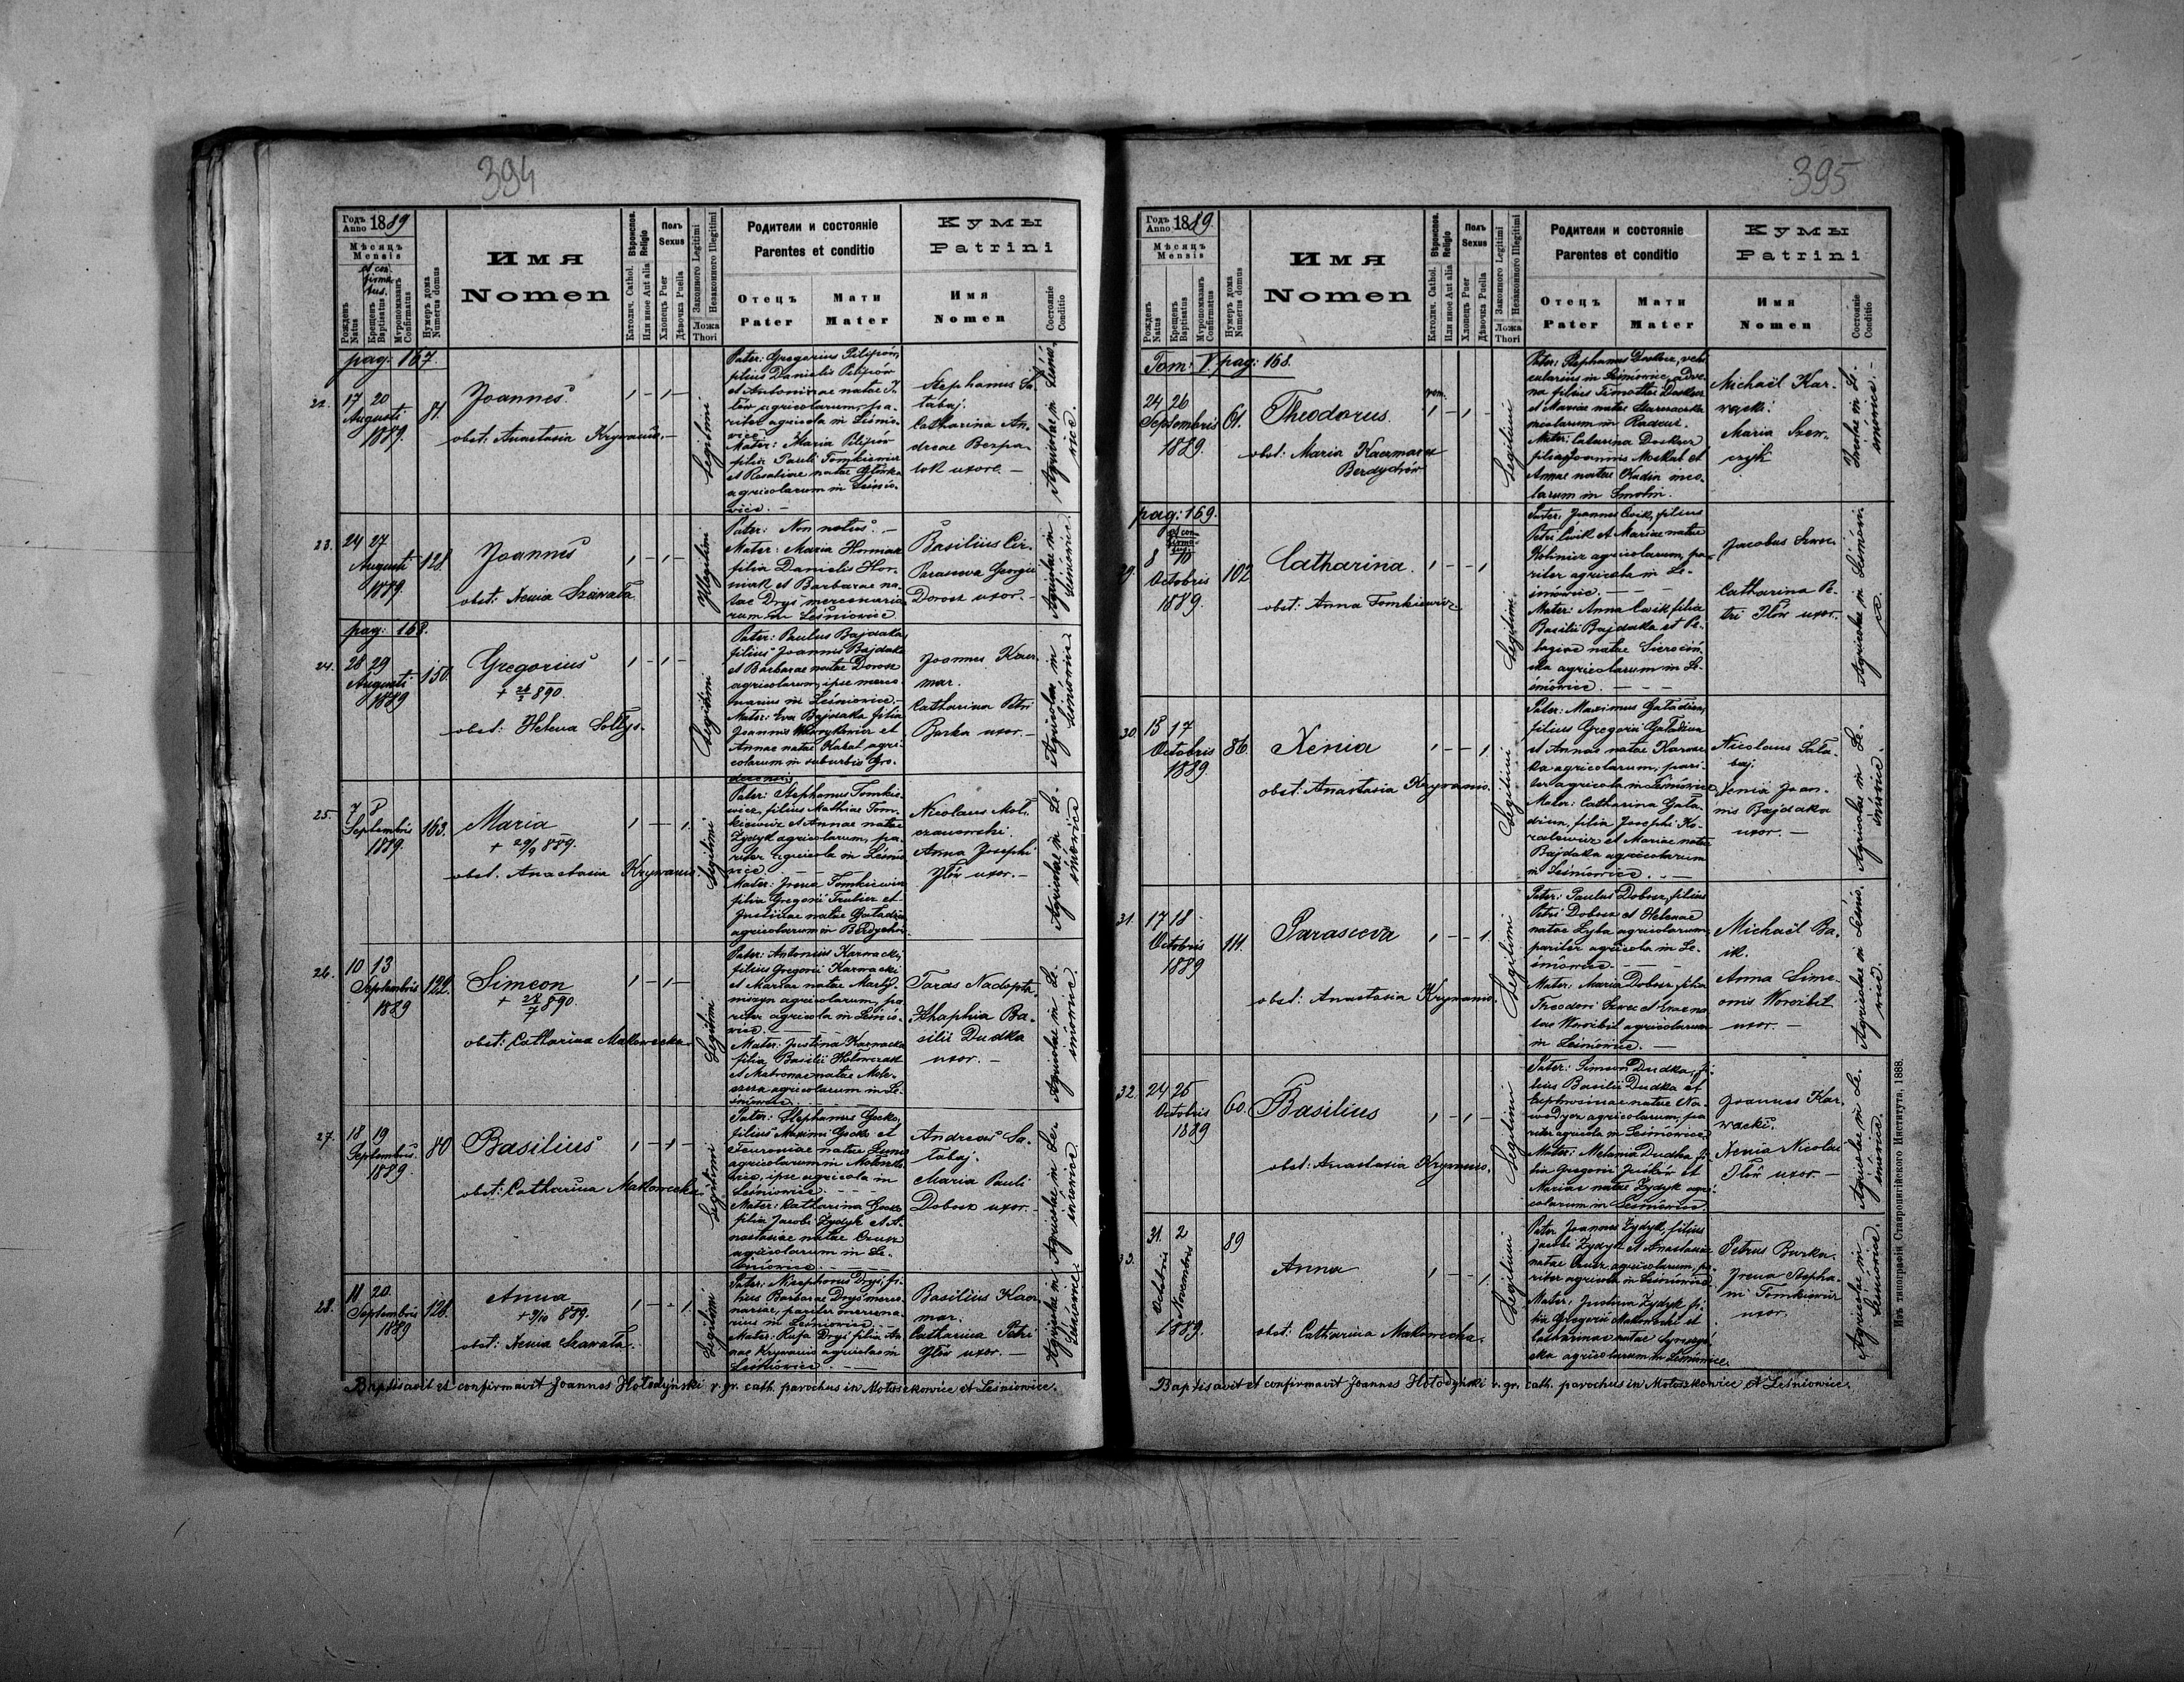 394
Годъ Anno 1889
Мѣсяцъ
Mensis
et confirmatus.
Рожденъ Natus
Крещенъ Baptisatus
Муропомазанъ Confirmatus
Нумеръ дома Numerus domus
Имя
Nomen
Вѣроиспов. Religio
Католич. Cathol.
Или иное Aut alia
Полъ
Sexus
Хлопецъ Puer
Дѣвочка Puella
Законного Legitimi
Незаконного Illegitimi
Ложа
Thori
Родители и состояніе
Parentes et conditio
Отецъ
Pater
Мати
Mater
Кумы
Patrini
Имя
Nomen
Состояніе
Conditio
pag: 167.
22.
17 20
Augusti
1889.
81.
Joannes.
obst: Anastasia Krywanio.
1 - 1 -
Legitimi
Pater: Gregorius Pilipów
filius Danielis Pilipów
et Antoninae natae
agricolarum, pa-
riter agricola in Leśnio-
wice
Mater: Maria Pilipów
filia Pauli Tomkiewicz
et Rosaliae natae
agricolarum in Leśnio-
wice. -
Stephanus Sa-
tabaj.
Catharina An-
dreae Berpa-
lok uxor. -
Agricolae in Leśnio-
wice.
23.
24 27
Augusti
1889.
128.
Joannes
obst: Xenia Szawała
1 - 1 -
Illegitimi
Pater: Non notus. -
Mater: Maria Horniak
filia Danielis Hor-
niak et Barbarae na-
tae Dryś mercenario-
rum in Leśniowice
Basilius Cir.
Parasceva Georgii
Dorosz uxor. -
Agricolae in
Leśniowice.
pag: 168.
24.
28 29
Augusti
1889
150.
Gregorius
+ 890.
obst: Helena Sołtys.
1 - 1 -
Legitimi
Pater: Paulus Bajdaka
filius Joannis Bajdaka
et Barbarae natae Dorosz
agricolarum, ipse merce-
narius in Leśniowice. -
Mater: Eva Bajdaka filia
Joannis et
Annae natae Kabat agri-
colarum in suburbio Gro-
decensis
Joannes Kacz-
mar.
Catharina Petri
Burka uxor. -
Agricolae in
Leśniowice.
25.
7 8
Septembris
1889.
163.
Maria
+ 29/9 889.
obst. Anastasia Krywanio.
1 - - 1.
Legitimi
Pater: Stephanus Tomkie-
wicz, filius Mathiae Tom-
kiewicz et Annae natae
Żydyk agricolarum, pa-
riter agricola in Leśnio-
wice. -
Mater: Irena Tomkiewicz
filia Gregorii Trubicz et
Justinae natae Gaładiun
agricolarum in Berdychów.
Nicolaus Mot-
Anna Josephi
Ilów uxor. -
Agricolae in Le-
śniowice
26.
10 13
Septembris
1889
122.
Simeon
+ 28/7 890.
obst: Catharina Makowecka.
1 - 1 -
Legitimi
Pater: Antonius Karwacki,
filius Gregorii Karwacki
et Mariae natae Marty-
niszyn agricolarum, pa-
riter agricola in Leśnio-
wice. -
Mater: Justina Karwacka
filia Basilii Hołowczak
et Matronae natae
agricolarum in Le-
śniowice.
Taras Nadopta.
Basilii Dudka
uxor. -
Agricolae in Le-
śniowice.
27.
18 19
Septembris.
1889.
80
Basilius
obst: Catharina Makowecka.
1 - 1 -
Legitimi
Pater: Stephanus Gocko,
filius Maximi Gocko et
natae
agricolarum in
ipse agricola in
Leśniowice. -
Mater: Katharina Gocko
filia Jacobi Żydyk et A-
nastasiae natae
agricolarum in Le-
śniowice.
Andreas Sa-
tabaj.
Maria Pauli
Dobosz uxor.
Agricolae in Le-
śniowice
28.
11 20.
Septembris
1889
128.
Anna
+ 9/10 889.
obst: Xenia Szawała.
1 - - 1.
Legitimi
Pater: Nicephorus Dryś, fi-
lius Barbarae Dryś merce-
nariae, pariter mercena-
rius in Leśniowice. -
Mater: Rufa Dryś filia An-
nae Krywanio agricolae in
Leśniowice. -
Basilius Kacz-
mar.
Catharina Petri
Ilów uxor. -
Agricolae in
Leśniowice.
Baptisavit et confirmavit Joannes Hołodyński r. gr. cath. parochus in Motoszkowice et Leśniowice.
395
Годъ Anno 1889.
Мѣсяцъ
Mensis
Рожденъ Natus
Крещенъ Baptisatus
Муропомазанъ Confirmatus
Нумеръ дома Numerus domus
Имя
Nomen
Вѣроиспов. Religio
Католич. Cathol.
Или иное Aut alia
Полъ
Sexus
Хлопецъ Puer
Дѣвочка Puella
Законного Legitimi
Незаконного Illegitimi
Ложа
Thori
Родители и состояніе
Parentes et conditio
Отецъ
Pater
Мати
Mater
Кумы
Patrini
Имя
Nomen
Состояніе
Conditio
Tom: V pag: 168.
24 26
Septembris
1889.
61.
Theodorus.
obst: Maria Kaczmarz
Berdychów
rom.
1 - 1 -
Legitimi
Pater: Stephanus
in Leśniowice, adve-
na filius Timothei
et Mariae natae
incolarum in
Mater: Catarina
filia Joannis Moskal et
Annae natae Kadin inco-
larum in Smolin.
Michaël Kar-
wacki.
Maria Szew-
czyk
Incolae in Le-
śniowice. -
pag: 169.
et confirmatus
29.
8 10
Octobris
1889.
102
Catharina.
obst: Anna Tomkiewicz
1 - - 1
Legitimi
Pater: Joannes Ćwik, filius
Petri Ćwik et Mariae natae
agricolarum, pa-
riter agricola in Le-
śniowice. - - -
Mater: Anna Ćwik filia
Basilii Bajdaka et Pe-
lagiae natae Sierociń-
ska agricolarum in Le-
śniowice. - - -
Jacobus Szwec.
Catharina Pe-
tri Ilów uxor.
Agricolae in Leśniowi-
ce.
30.
15 17
Octobris
1889.
86.
Xenia
obst: Anastasia Krywanio.
1 - - 1.
Legitimi
Pater: Maximus Gaładiun,
filius Gregorii Gaładiun
et Annae natae Karwac-
ka agricolarum, pari-
ter agricola in Leśniowice
Mater: Catharina Gała-
diun, filia Josephi Ko-
walewicz et Mariae natae
Bajdaka agricolarum
in Leśniowice. -
Nicolaus Sata-
baj.
Xenia Joan-
nis Bajdaka
uxor. -
Agricolae in Le-
śniowice.
31.
17 18
Octobris
1889
111.
Parasceva
obst: Anastasia Krywanio.
1 - - 1.
Legitimi
Pater: Paulus Dobosz, filius
Petri Dobosz et Helenae
natae Zyba agricolarum,
pariter agricola in Le-
śniowice. -
Mater: Maria Dobosz, filia
Theodori Szwec et Evae na-
tae Worobił agricolarum
in Leśniowice. -
Michaël Ba-
ik.
Anna Sime-
onis Worobił
uxor. -
Agricolae in Leśnio-
wice.
32.
24 25
Octobris
1889
60.
Basilius
obst: Anastasia Krywanio.
1 - 1 -
Legitimi
Pater: Simeon Dudka, fi-
lius Basilii Dudka et
Euphrosinae natae Na-
agricolarum, pa-
riter agricola in Leśniowice.
Mater: Melania Dudka fi-
lia Gregorii Juśków et
Mariae natae Żydyk agri-
colarum in Leśniowice.
Joannes Kar-
wacki.
Xenia Nicolai
Ilów uxor. -
Agricolae in Le-
śniowice.
33.
31. 2
Octobris Novembris
1889.
89
Anna
obst: Catharina Makowecka.
1 - - 1.
Legitimi
Pater: Joannes Żydyk, filius
Jacobi Żydyk et Anastasiae
natae agricolarum, pa-
riter agricola in Leśniowice
Mater: Justina Żydyk fi-
lia Gregorii Makowecki et
Catharinae natae
agricolarum in Leśniowice.
Petrus Burka.
Irena Stepha-
ni Tomkiewicz
uxor.
Agricolae in
Leśniowice.
Baptisavit et confirmavit Joannes Hołodyński r. gr. cath. parochus in Motoszkowice et Leśniowice.
Изъ типографіи Ставропигійского Института, 1888.